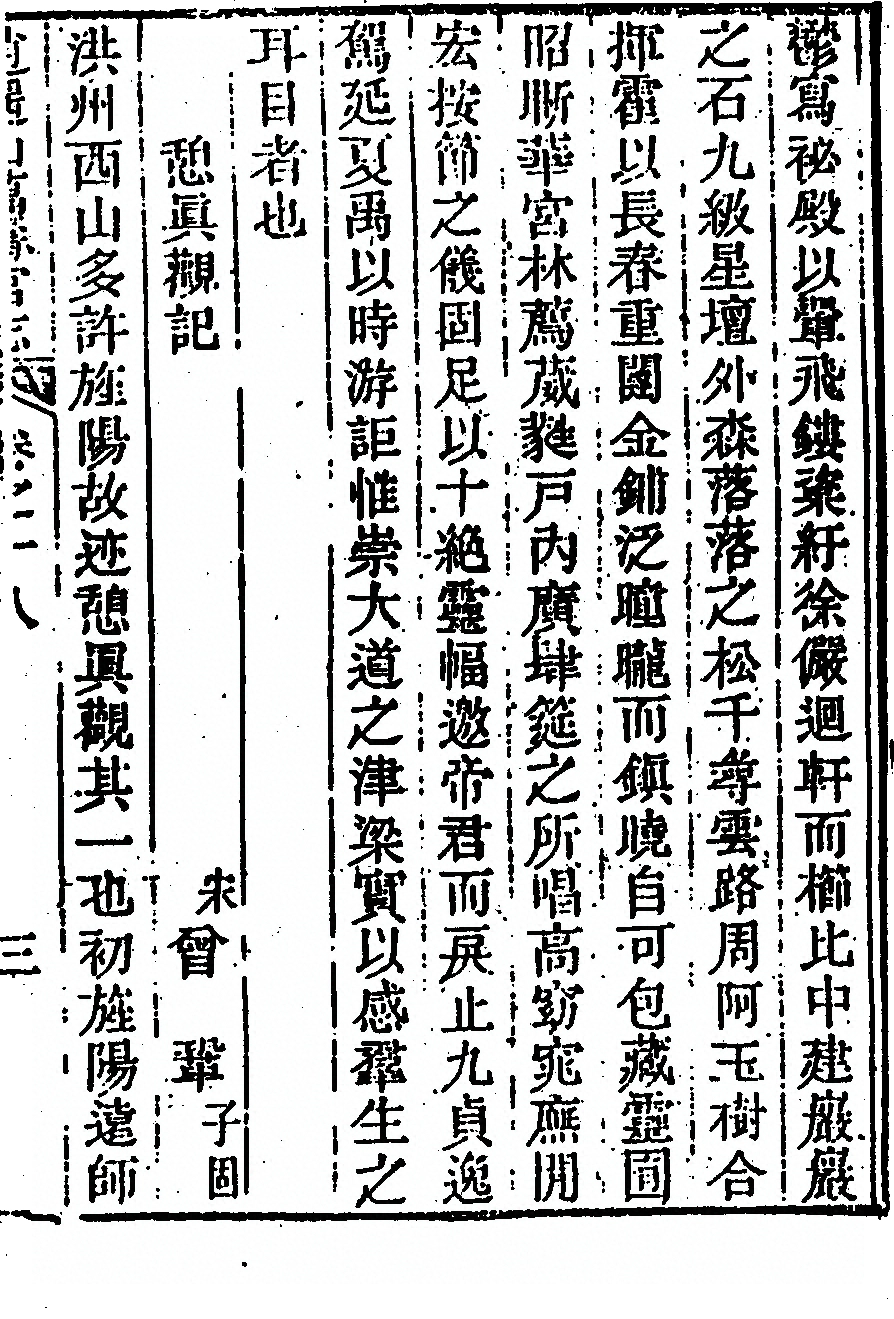 鬱寫祕殿以翬飛鏤楶紆徐儼迴軒而櫛比中建巖巖
之石九級星壇外森落落之松千尊雲路周阿玉樹合
揮霍以長春重闉金鋪泛曈曨而鎮曉自可包藏靈囿
昭晰華宮林薦葳蕤戸内廣肆筵之所唱高窈窕廡閒
宏按節之儀固足以十絶靈幅邀帝君而戾止九貞逸
駕延夏禹以時游詎惟崇大道之津梁實以感羣生之
耳目者也
憩眞觀記
宋曾 鞏子固
洪州西山多許旌陽故迹憩眞觀其一也初旌陽遠師
逍遥山萬壽宮志 卷之二八 三